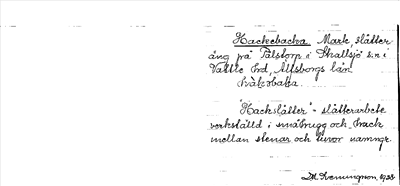 Hackebacka Mark, slåtter
äng på Pålstorp i Skallsjö s:n i
Vättle hrd, Älfsborgs län
"Hackslåtter" - slåtterarbete
verkställd i småbrugg och back
mellan stenar och tuvor
1938